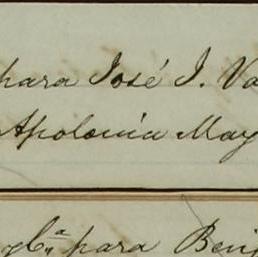 para José I. Va
Apolonia May
y Cª para Benj